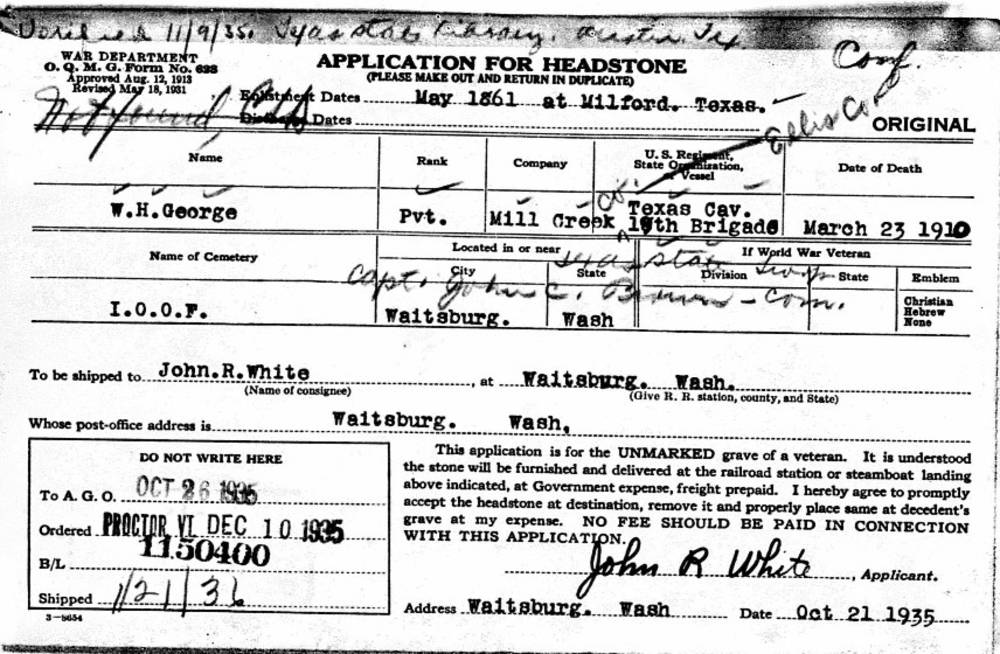 Verified 11/9/35. Texas State Library, Austin, Tex.
WAR DEPARTMENT
O. Q. M. G. Form No. 623
Approved Aug. 12, 1913
Revised Mar 18, 1931
APPLICATION FOR HEADSTONE
(PLEASE MAKE OUT AND RETURN IN DUPLICATE)
Conf.
Enlistment Dates May 1861 at Milford. Texas.
Not found
Discharge Dates
Ellis Co.
ORIGINAL
Name Rank Company U. S. Regiment, State Organization, or Vessel Date of Death
W.H.George Pvt. Mill Creek Co. Texas Cav. 19th Brigade March 23 1910
Name of Cemetery Located in or near If World War Veteran
City State Division State Emblem
Texas State Troops
Capt. John C. Brown - Com.
I.O.O.F. Waitsburg. Wash
Christian
Hebrew
None
To be shipped to John.R.White, at Waitsburg. Wash.
(Name of consignee) (Give R. R. station, county, and State)
Whose post-office address is Waitsburg. Wash,
DO NOT WRITE HERE
To A. G. O. OCT 26 1935
Ordered PROCTOR VT DEC 10 1935
1150400
B/L
Shipped 1/21/36
3-8654
This application is for the UNMARKED grave of a veteran. It is understood
the stone will be furnished and delivered at the railroad station or steamboat landing
above indicated, at Government expense, freight prepaid. I hereby agree to promptly
accept the headstone at destination, remove it and properly place same at decedent's
grave at my expense. NO FEE SHOULD BE PAID IN CONNECTION
WITH THIS APPLICATION.
John R White, Applicant.
Address Waitsburg. Wash Date Oct 21 1935